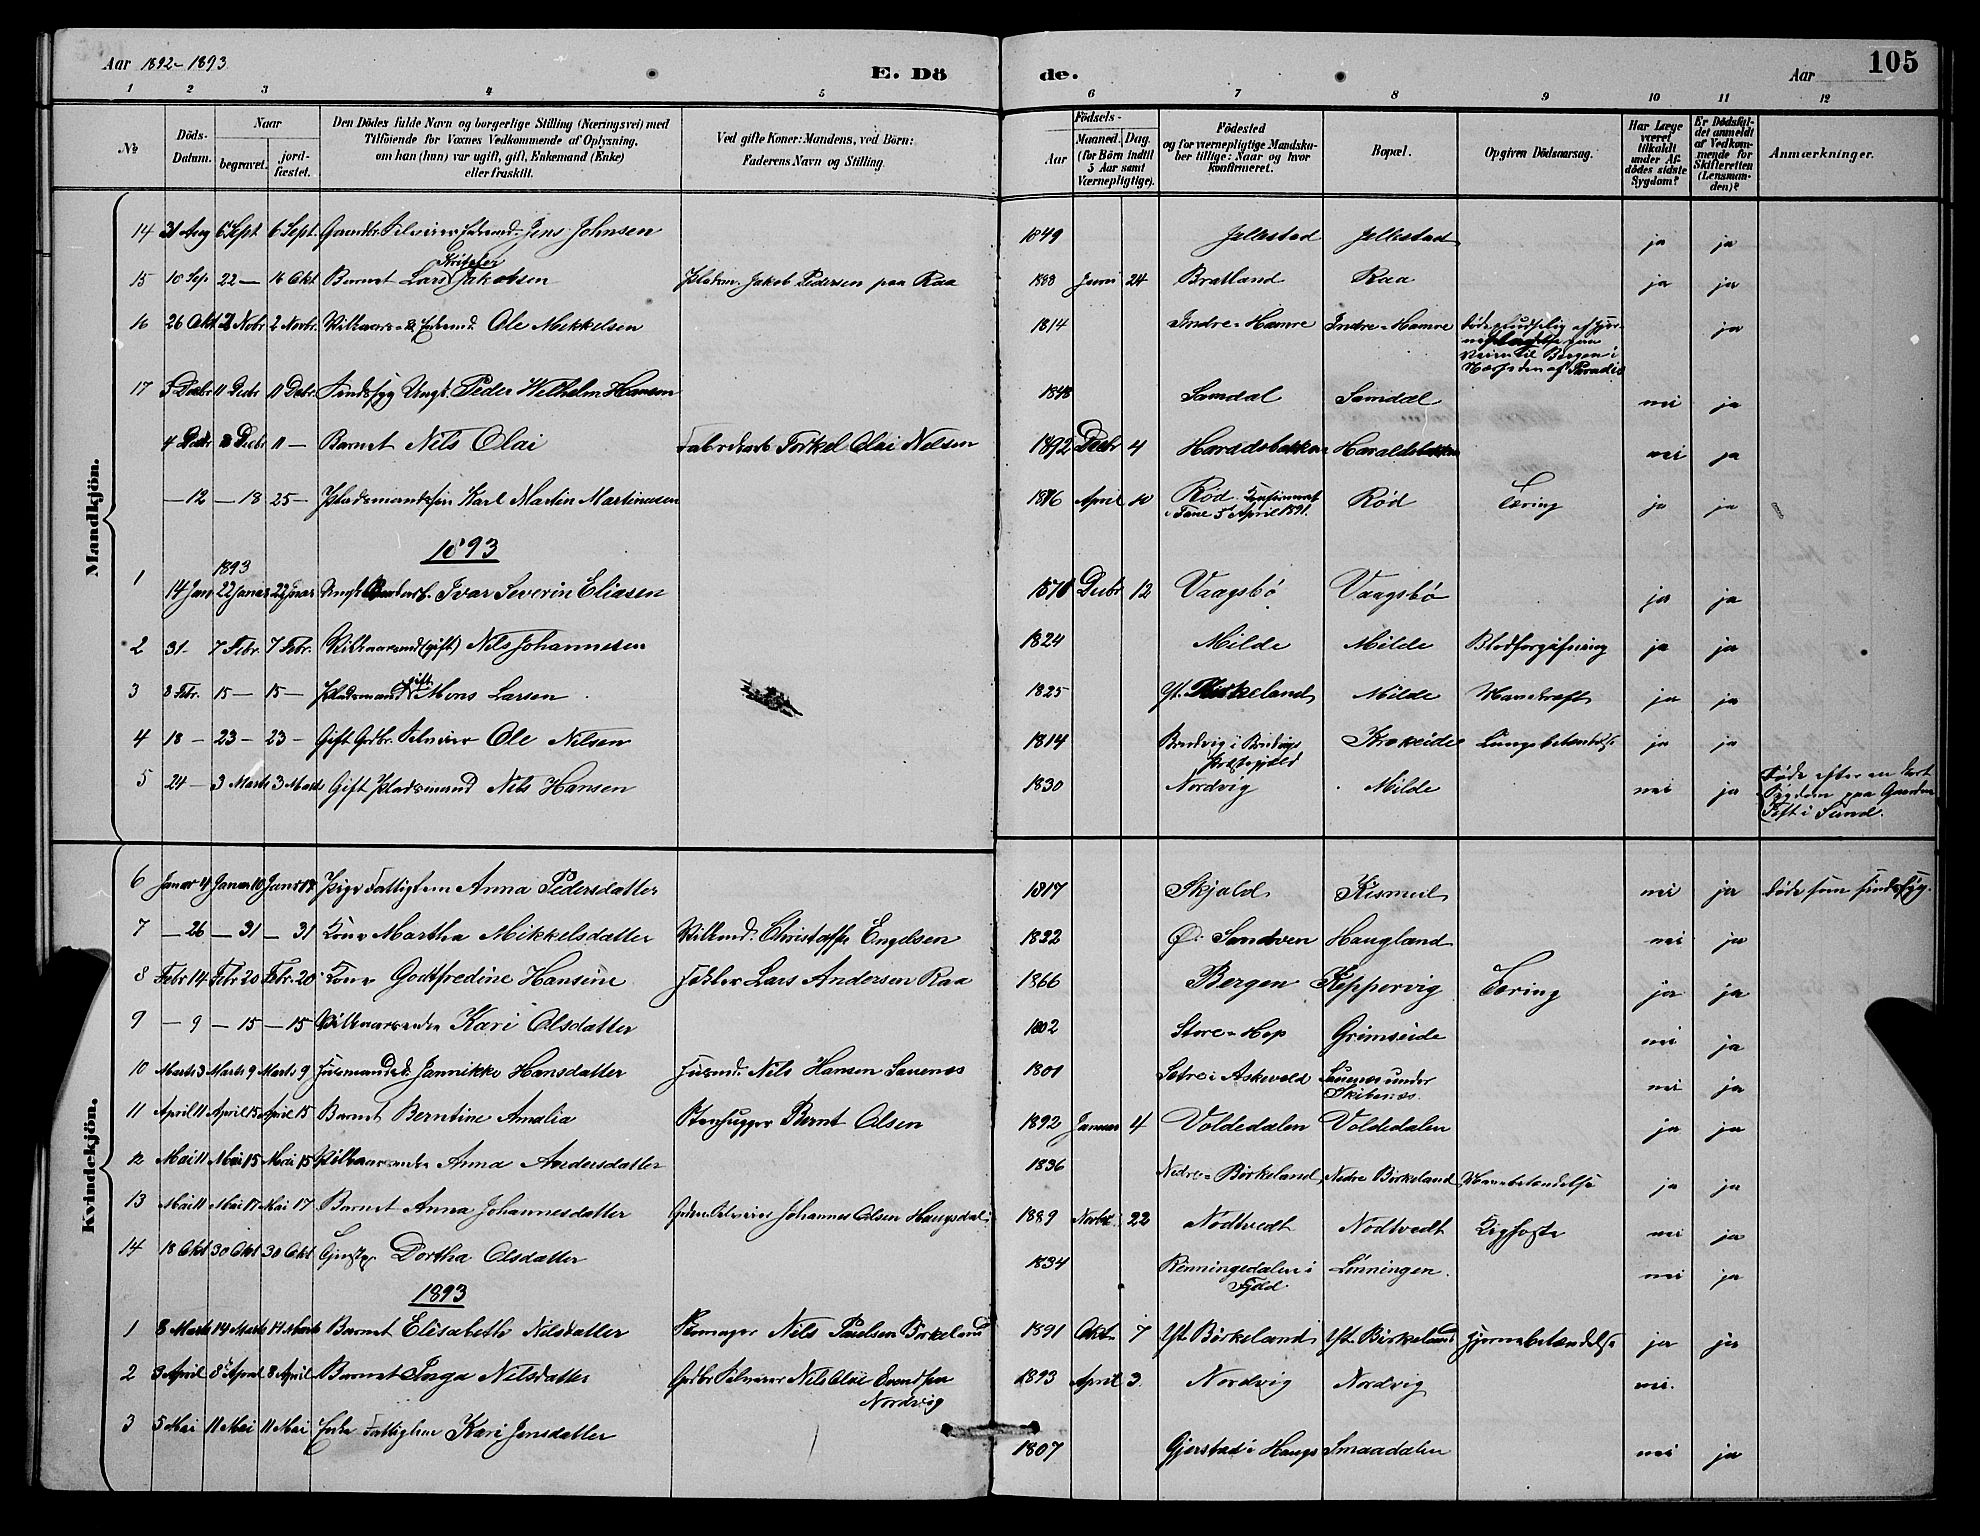 Aar 1892-1893
E. Döde.
Aar
105
1 2 3 4 5 6 7 8 9 10 11 12
No
Döds-Datum.
Naar
begravet.
jordfæstet.
Den Dödes fulde Navn og borgerlige Stilling (Næringsvei) med
Tilföiende for Voxnes Vedkommende af Oplysning,
om han (hun) var ugift, gift, Enkemand (Enke)
eller fraskilt.
Ved gifte Koner: Mandens, ved Börn:
Faderens Navn og Stilling.
Födsels-
Aar
Maaned. Dag.
(for Börn indtil
5 Aar samt
Værnepligtige).
Födested
og for værnepligtige Mandskaber tillige: Naar og hvor
konfirmeret.
Bopæl.
Opgiven Dödsaarsag.
Har Læge
været
tilkaldt
under Afdödes sidste
Sygdom?
Er Dødsfaldet anmeldt
af Vedkommende for
Skifteretten
(Lensmanden)?
Anmærkninger.
Mandkjön.
14 31 Aug 6 Sept 6 Sept. Gaardbr. Selveier Jens Johnsen 1849 Jelkestad Jelkestad ja ja
15 10 Sep. 22 — 16 Okt Barnet Lars Jakobsen Pladsm. Jakob Pedersen paa Raa Juni 24 Bratland Raa ja ja
16 26 Okt 2 Nobr 2 Novbr. Ole Mikkelsen 1814 Indre-Hamre Indre-Hamre ja
Veien til Bergen i
Nærheden af Paradis
17 5 Decbr 11 Decbr 11 Decbr. Sindssyg Ungk. Peder Wilhelm Hansen 1848 Samdal Samdal nei ja
4 Decbr Decbr 11 — Barnet Nils Olai Torkel Olai Nilsen 1892 Decbr 4 Haraldsbakken Haraldsbakken nei ja
— 12 — 18 25 — Pladsmandssøn Karl Martin Martinusen 1876 April 10 Rød. Konfirmeret
i Fane 5 April 1891. Rød Tæring ja ja
1893
1 14 Jan 22 Januar 22 Januar Ungk. Ivar Severin Eliasen Decbr 12 Vaagsbø Vaagsbø ja ja
2 31 7 Febr. 7 Febr. Vilkaarsmd (gift) Nils Johannesen 1824 Milde Milde Blodforgiftning ja ja
3 8 Febr. 15 — 15 — Pladsmand gift Mons Larsen 1825 Yt. Birkeland Milde Mavekræft ja ja
4 18 — 23 — 23 — Gift Gdbr. Selveier Ole Nilsen 1814 Bruvig i Bruvigs
Præstegjeld Krokeide Lungebetændelse ja ja
5 24 — 3 Marts 3 Marts Gift Pladsmand Nils Hansen 1830 Nordvig Milde nei ja Døde efter en kort
Sygdom paa Gaarden
Toft i Sund.
Kvindekjön.
6 Januar 4 Januar 10 Januar 17 Pige Fattiglem Anna Pedersdatter 1817 Skjold Kismul nei ja Døde som sindssyg.
7 — 26 — 31 — 31 Kone Martha Mikkelsdatter Vilkmd. Christoffer Engelsen 1832 Ø. Sandven Haugland nei ja
8 Febr 14 Febr 20 Febr. 20 Kone Godtfredine Hansine Lars Andersen Raa 1866 Bergen Keppervig Tæring ja ja
9 — 9 — 15 — 15 Vilkaarsenke Kari Olsdatter 1802 Store-Hop Grimseide nei ja
10 Marts 3 Marts 9 Marts 9 Jannikke Hansdatter Nils Hansen Sauenæs 1801 Sætre i Askevold Sauenæs under
Skibenæs. nei ja
11 April 11 April 15 April 15 Barnet Berntine Amalia Stenhugger Bernt Olsen 1892 Januar 4 Voldedalen Voldedalen ja ja
12 Mai 11 Mai 15 Mai 15 Vilkaarsenke Anna Andersdatter 1836 Nedre-Birkeland Nedre Birkeland Mavebetændelse ja ja
13 Mai 11 Mai 17 Mai 17 Barnet Anna Johannesdatter Selveier Johannes Olsen Haugsdal 1889 Novbr. 22 Nodtvedt Nodtvedt Kighoste nei ja
14 18 Okt 30 Okt 30 Okt Dortha Olsdatter 1834 Rønningedalen i
Lønningen nei ja
1893
1 8 Marts 14 Marts 14 Marts Barnet Elisabeth Nilsdatter Skomager Nils Paulsen Birkeland 1891 Okt. 7 Yt. Birkeland Yt. Birkeland Hjernebetændelse ja ja
2 3 April 8 April 8 April Barnet Inga Nilsdatter Gdbr. Selveier Nils Olai
Nordvig 1893 April 3. Nordvig Nordvig nei.
3 5 Mai 11 Mai 11 Mai Enke Fattiglem Kari Jensdatter 1807 Gjerstad i Haugs Smaadalen nei ja